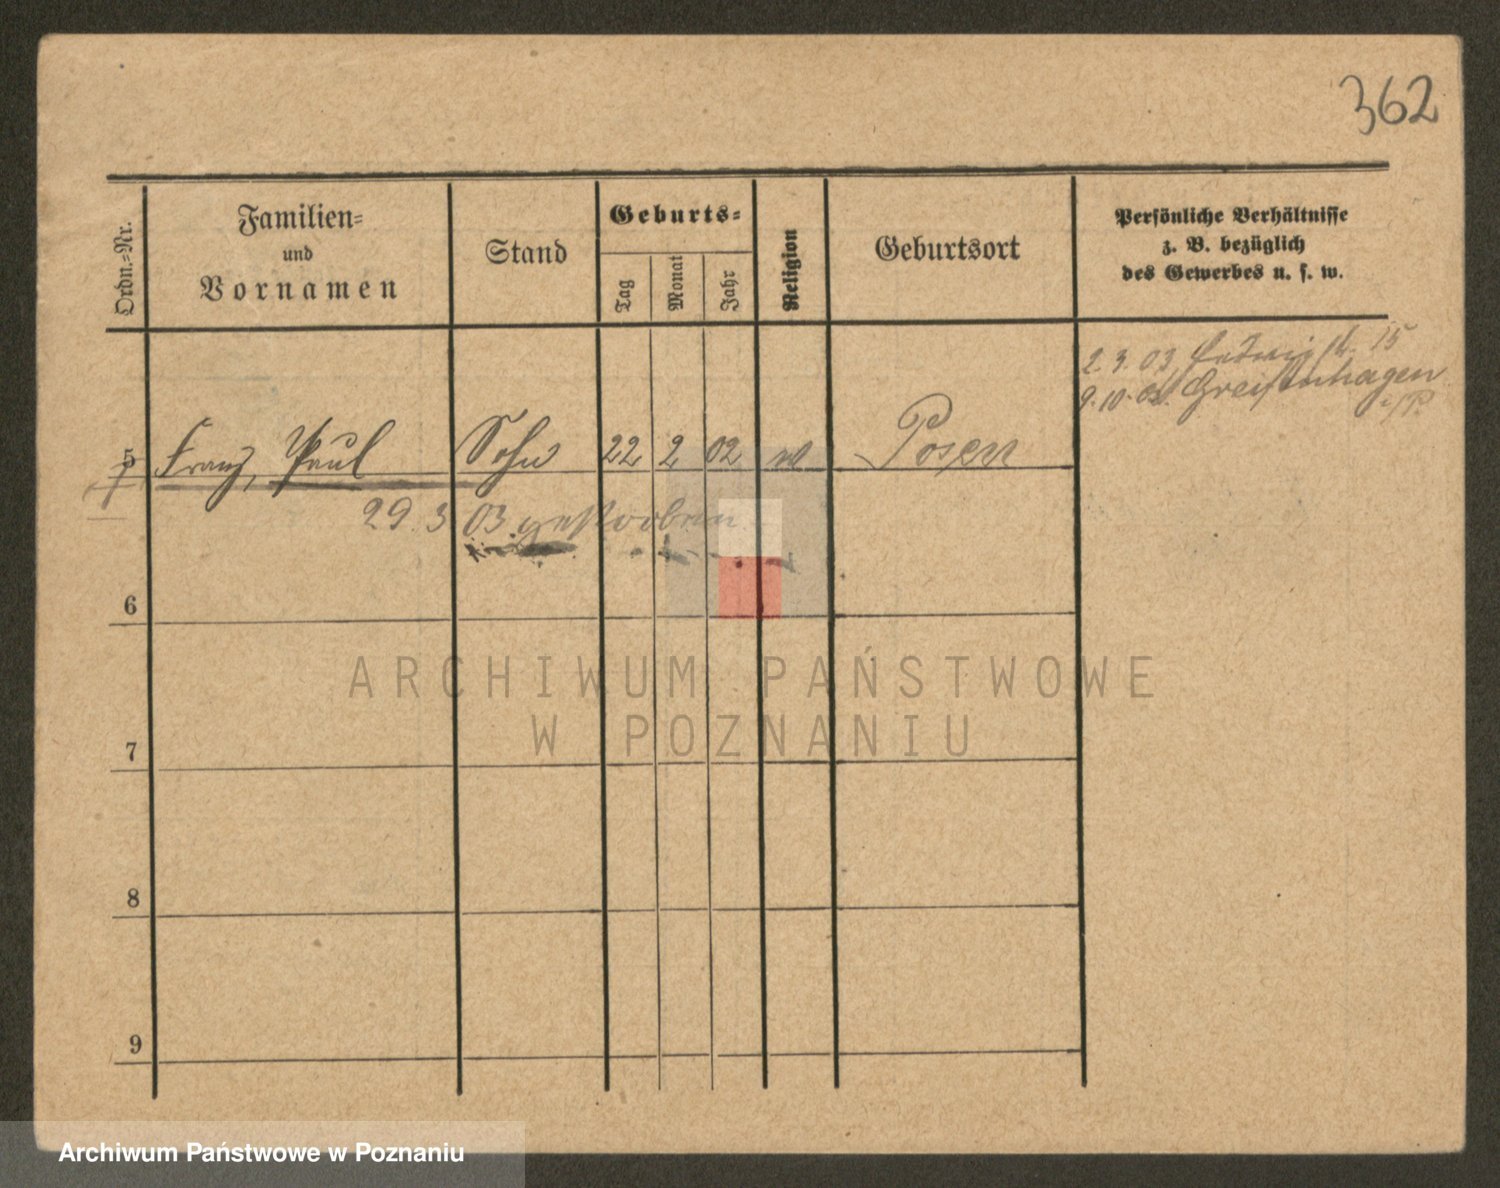 362
Ordn.-Nr.
Familien-
und
Vornamen
Stand
Geburts-
Tag
Monat
Jahr
Religion
Geburtsort
Persönliche Verhältnisse
z. B. bezüglich
des Gewerbes u. s. w.
2.3.03 Hedwigstr. 15
9.10.03. Greifenhagen
i/P.
5 Franz, Paul Sohn 22 2 02 Posen
29.3.03 gestorben
6
7
8
9
ARCHIWUM PAŃSTWOWE
W POZNANIU
Archiwum Państwowe w Poznaniu